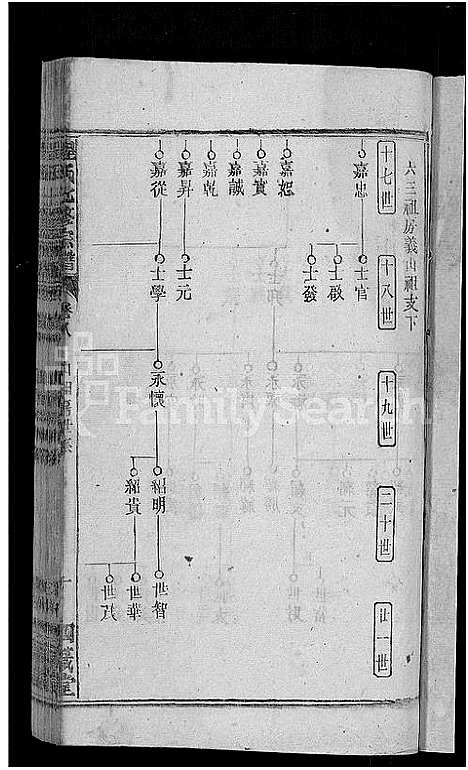 六三祖房義山祖支下
十七世
十八世
十九世
二十世
廿一世
嘉忠
嘉恕
嘉賓
嘉誠
嘉乾
嘉昇
嘉從
士官
士啟
士發
士元
士學
永懷
紹明
紹貴
世智
世華
世茂
FamilySearch